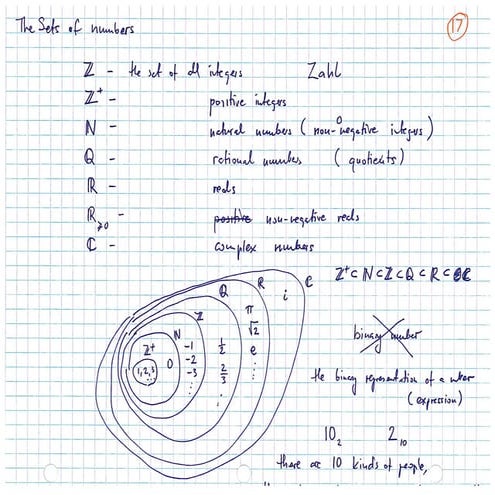 The Sets of numbers
17
ℤ – the set of all integers Zahl
ℤ⁺ – positive integers
ℕ – natural numbers (non-negative integers)
0
ℚ – rational numbers (quotients)
ℝ – reals
ℝ≥0 – positive non-negative reals
ℂ – complex numbers
ℤ⁺⊂ℕ⊂ℤ⊂ℚ⊂ℝ⊂ℂ
ℂ
ℝ
i
ℚ
π
√2
e
⋮
ℤ
1/2
2/3
⋮
ℕ
-1
-2
-3
⋮
0
ℤ⁺
1,2,3
...
binary number
the binary representation of a
(expression)
10₂ 2₁₀
there are 10 kinds of people,